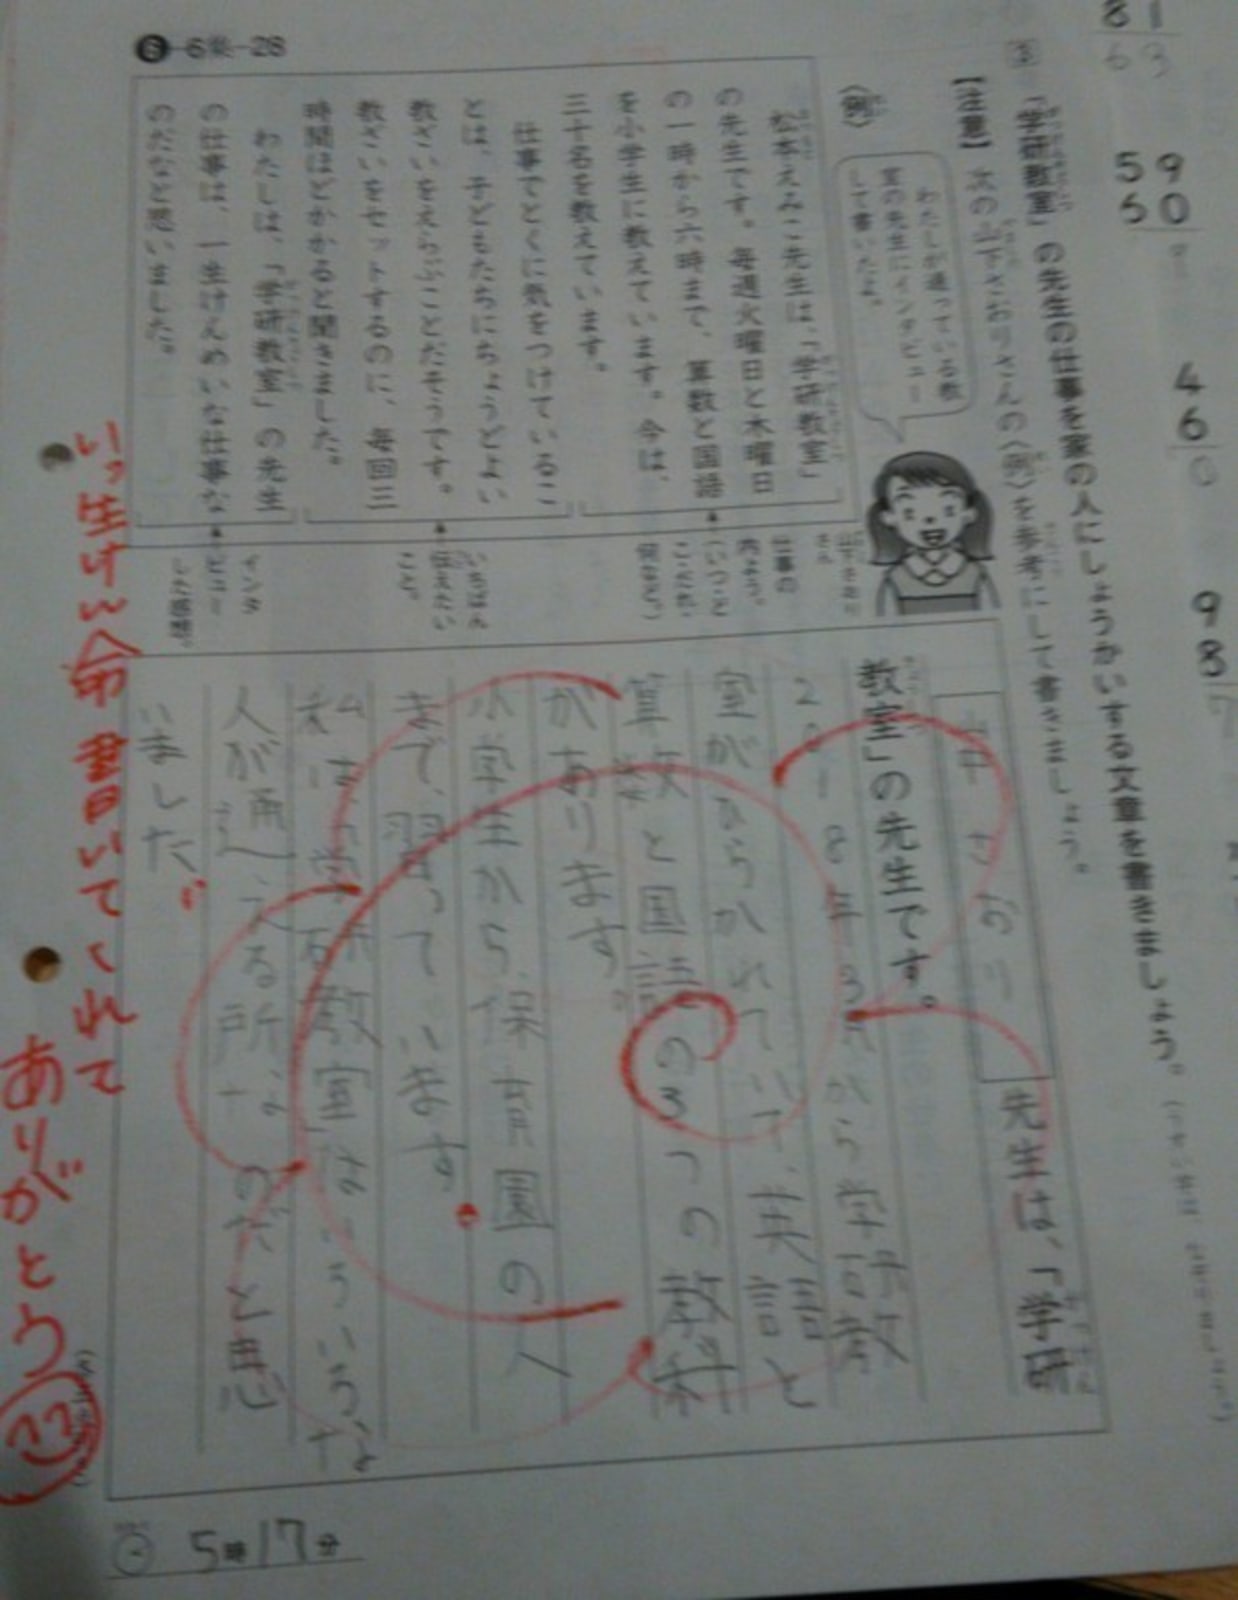 「学研教室」の先生の仕事を家の人にしょうかいする文章を書きましょう。
【注意】 次の山下さおりさんの〈例〉を参考にして書きましょう。
〈例〉
わたしが通っている教
室の先生にインタビュー
して書いたよ。
松本えみこ先生は、「学研教室」
の先生です。毎週火曜日と木曜日
の一時から六時まで、算数と国語
を小学生に教えています。今は、
三十名を教えています。
仕事でとくに気をつけているこ
とは、子どもたちにちょうどよい
教ざいをえらぶことだそうです。
教ざいをセットするのに、毎回三
時間ほどかかると聞きました。
わたしは、「学研教室」の先生
の仕事は、一生けんめいな仕事な
のだなと思いました。
仕事の
内よう。
(いつ、ど
こで、だれに、
何を、など)
いちばん
伝えたい
こと。
インタ
ビュー
した感想。
さおり 先生は、「学研
教室」の先生です。
2018年3月から学研教
室がひらかれていて、英語と
算数と国語の3つの教科
があります。
小学生から、保育園の人
まで、習っています。
私は、「学研教室」はいろいろな
人が通える所なのだと思
いました。
いっ生けん命書いてくれて
ありがとう
6-6集-28
5時17分
8 1
6 3
5 9
5 0
4
6
9
8